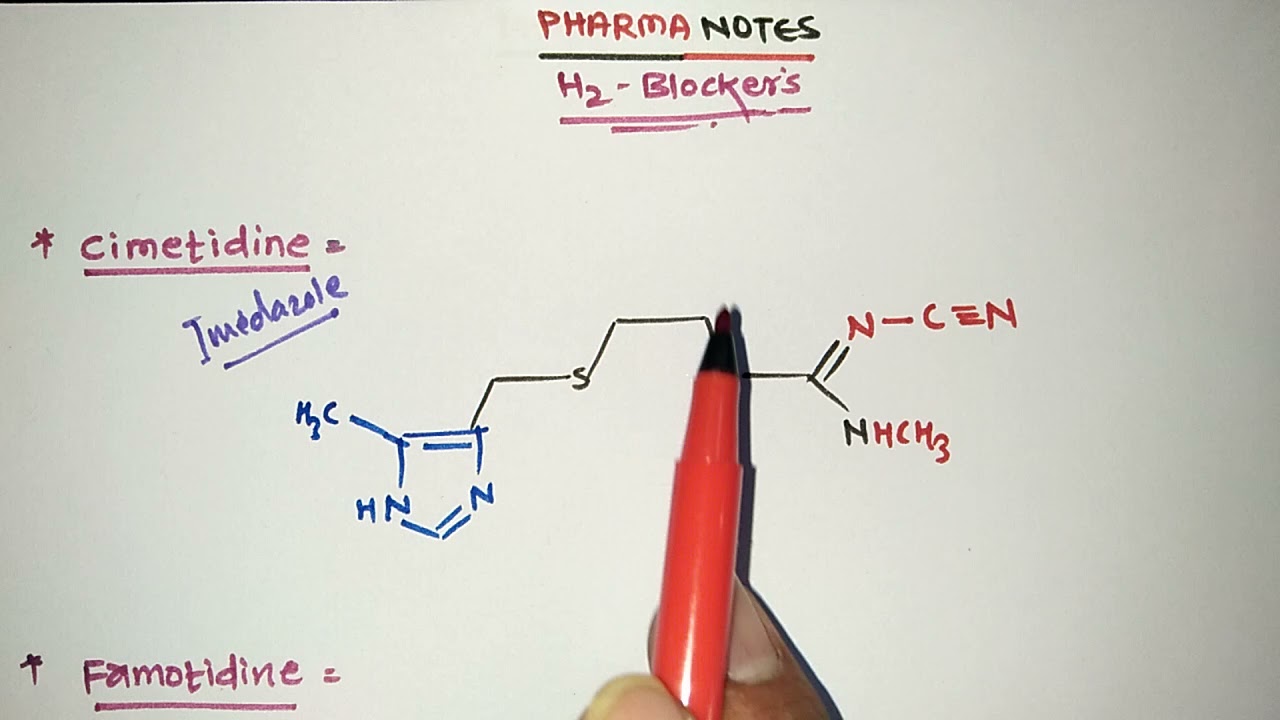 PHARMA NOTES
H2-Blocker's
* Cimetidine =
Imedazole
N-C≡N
S
H3C
NHCH3
HN
N
* Famotidine =